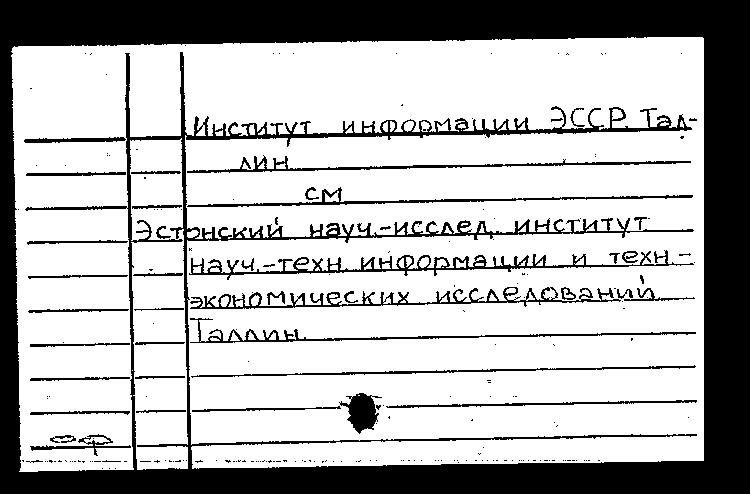 Институт информации ЭССР. Тал-
лин
см
Эстонский науч.-исслед. институт
науч.-техн. информации и техн.-
экономических исследований
Таллин.